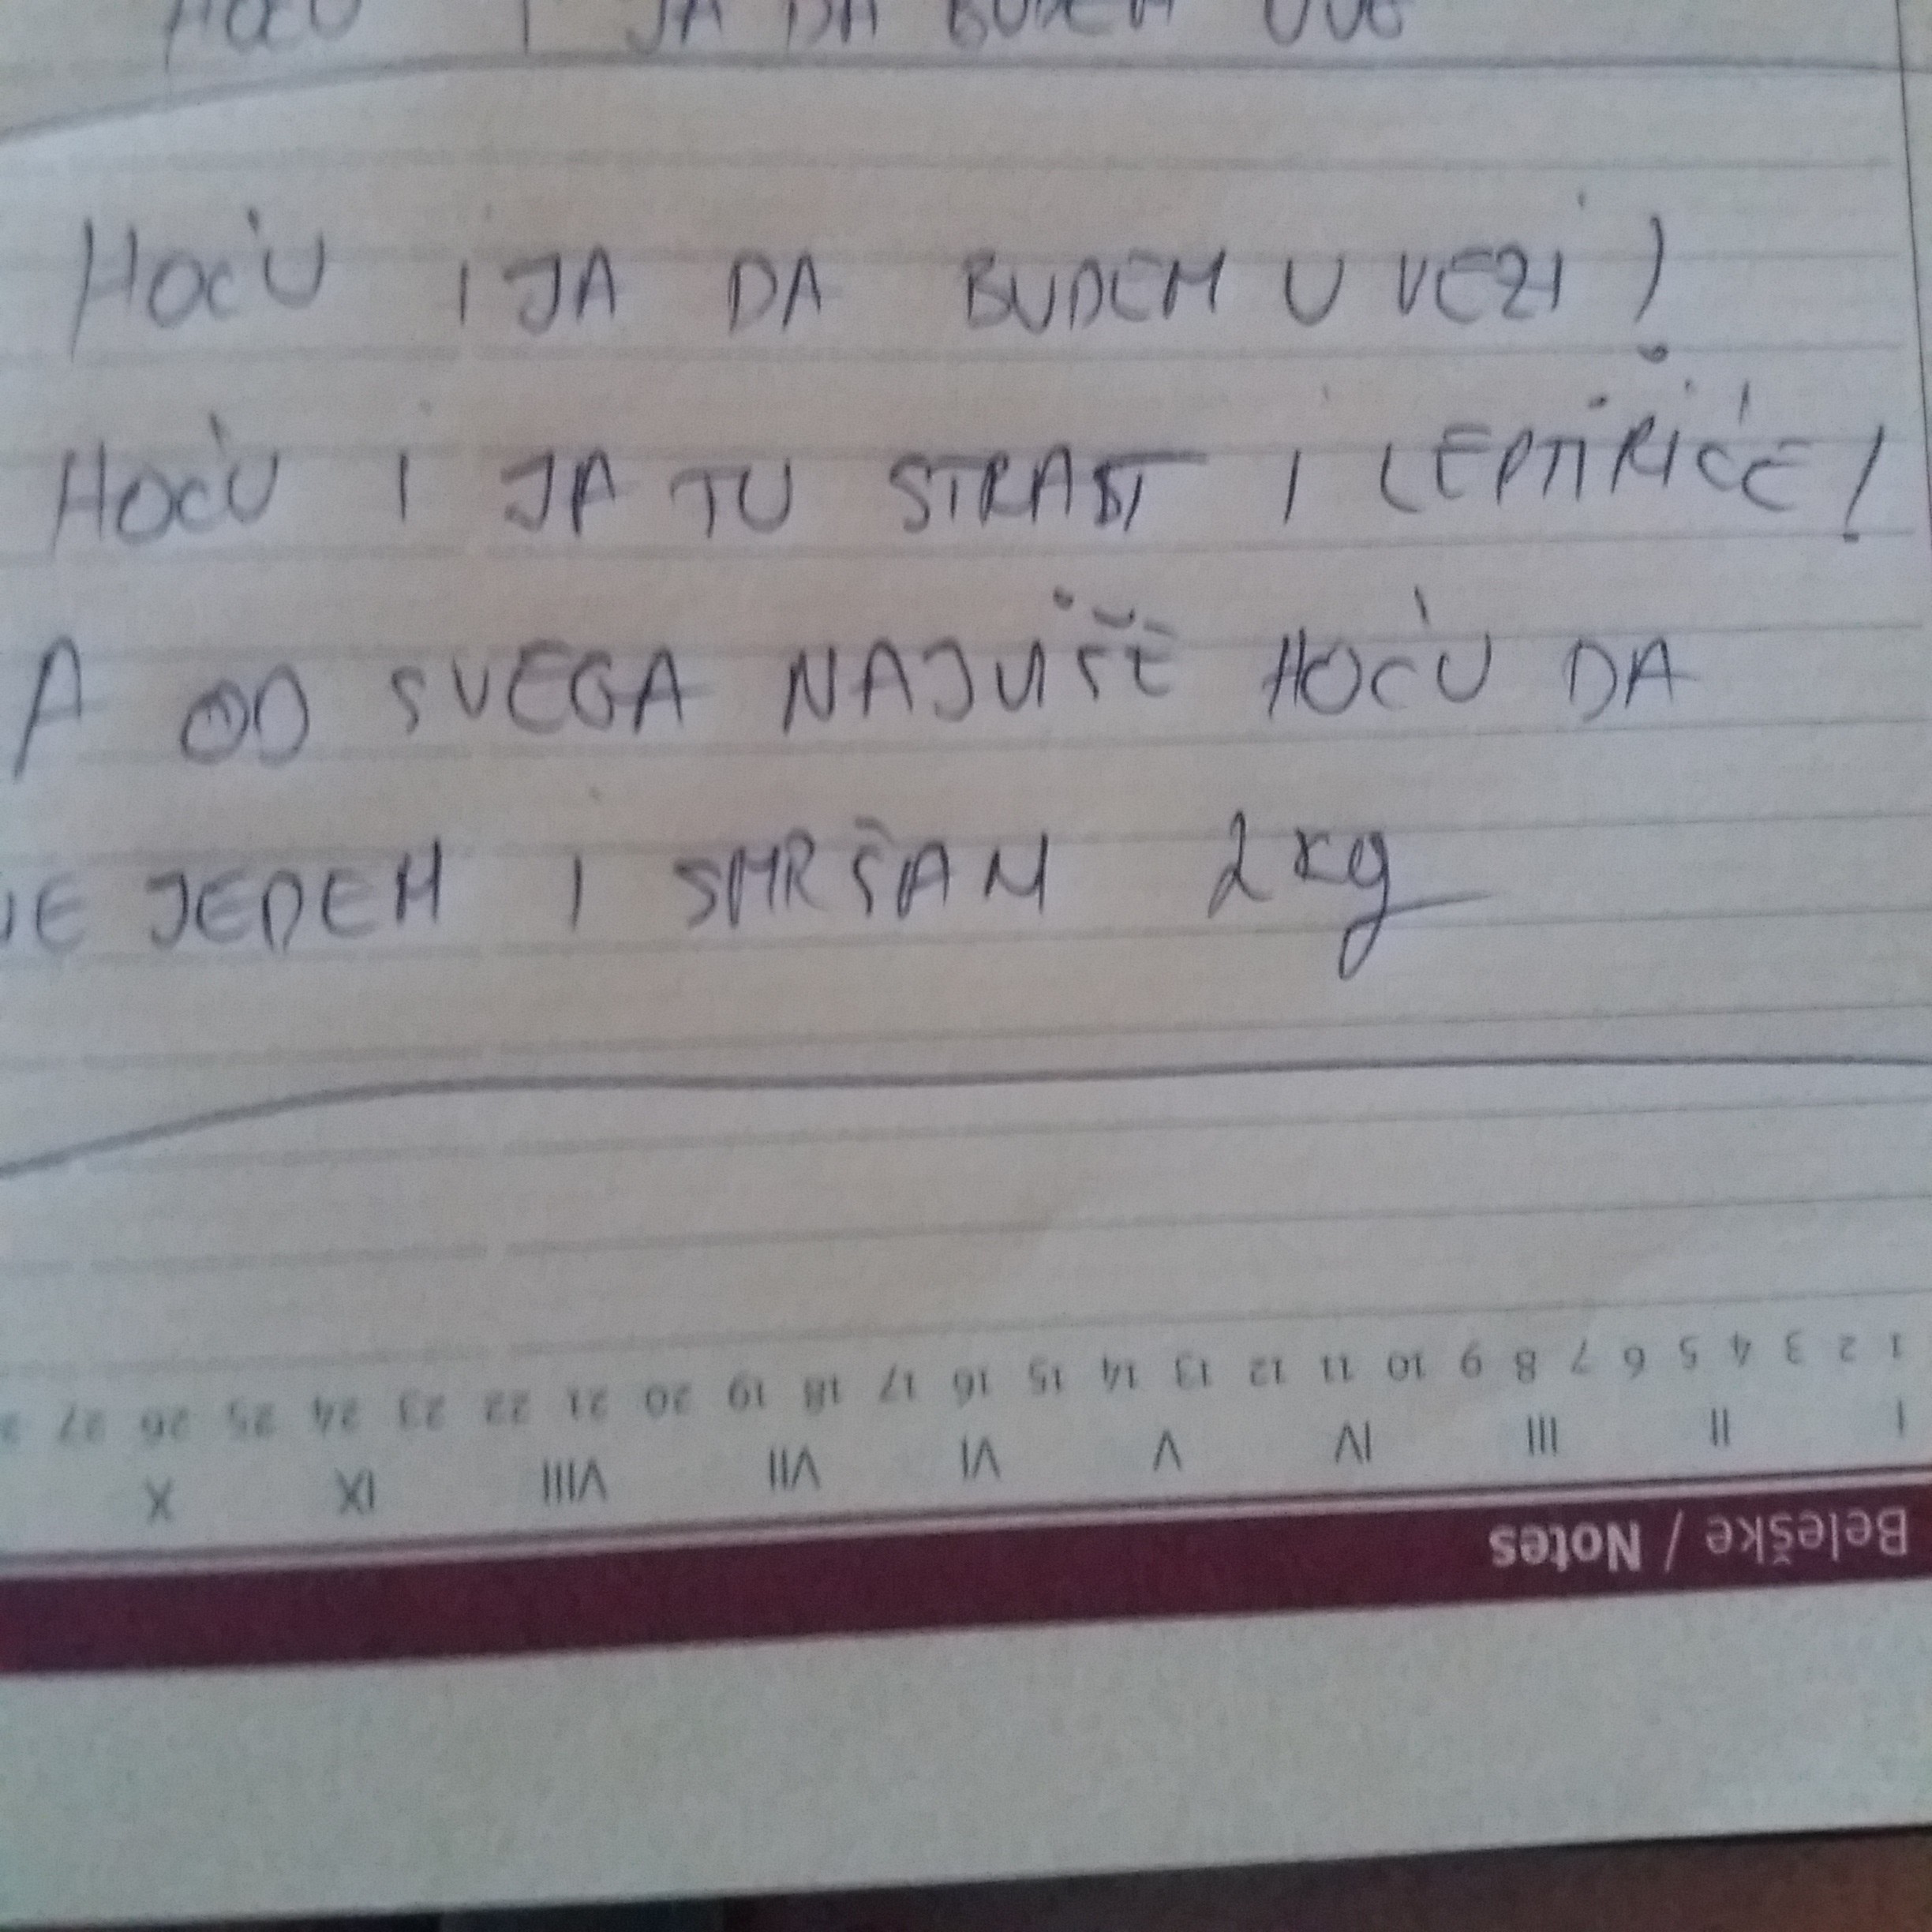 HOĆU I JA DA BUDEM
HOĆU I JA DA BUDEM U VEZI!
HOĆU I JA TU STRAST I LEPTIRIĆE!
A OD SVEGA NAJVIŠE HOĆU DA
NE JEDEM I SMRŠAM 2 kg
1 2 3 4 5 6 7 8 9 10 11 12 13 14 15 16 17 18 19 20 21 22 23 24 25 26 27
I II III IV V VI VII VIII IX X
Beleške / Notes